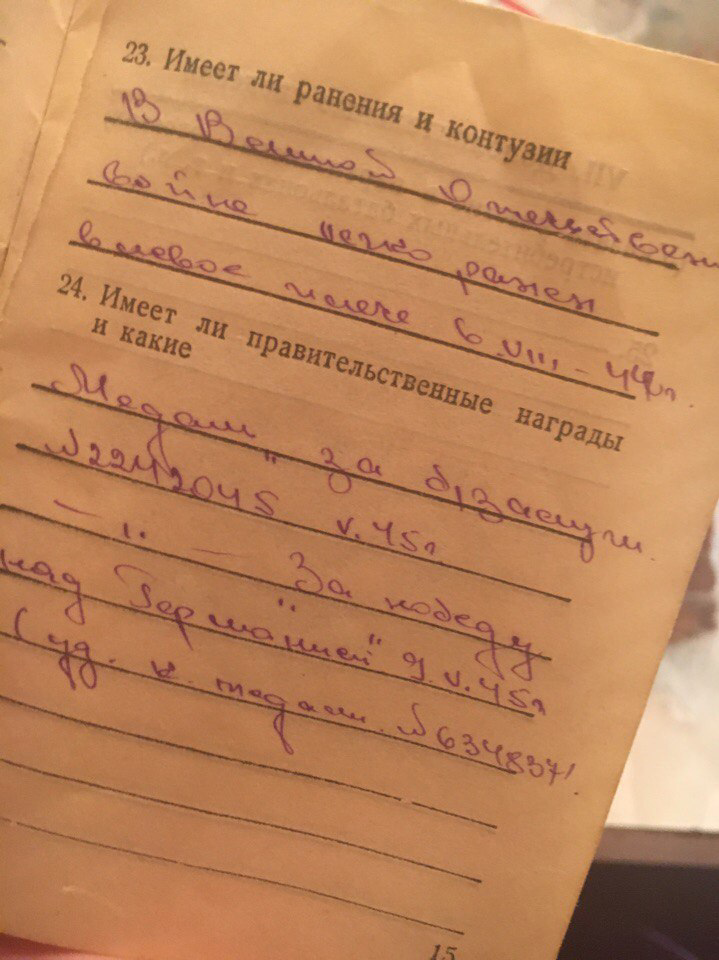 23. Имеет ли ранения и контузии
В Великой Отечествен
войне легко ранен
в левое плече 6.VIII-44г.
24. Имеет ли правительственные награды
и какие
Медаль "за б/заслуги
№2242045 V.45г
—"— "За победу
над Германией" 9.V.45г
(уд. к медали №634837)
15